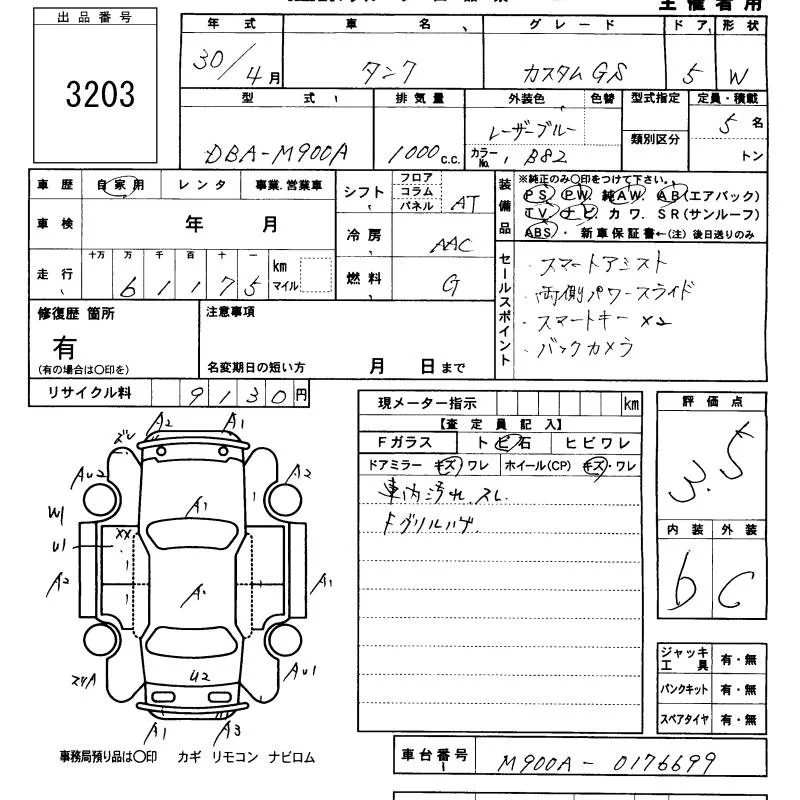 主催者用
出品番号
3203
年式 車名 グレード ドア 形状
30/4月 タンク カスタムGS 5 W
型式 排気量 外装色 色替 型式指定 定員・積載
類別区分
DBA-M900A 1000c.c. レーザーブルー 5名
カラーNo. B82 トン
車歴 自家用 レンタ 事業.営業車
シフト フロア コラム パネル AT
車検 年 月
冷房 AAC
走行 十万 万 千 百 十 一
6 1 1 7 5 km マイル
燃料 G
装備品 ※純正のみ○印をつけて下さい。
PS PW. 純AW. AB(エアバック)
TV ナビ カワ. SR(サンルーフ)
ABS・ 新車保証書←(注)後日送りのみ
セールスポイント
・スマートアシスト
・両側パワースライド
・スマートキー×2
・バックカメラ
修復歴 箇所
有
(有の場合は○印を)
注意事項
名変期日の短い方 月 日まで
リサイクル料 9130円
現メーター指示 km
【査定員記入】
Fガラス トビ石 ヒビワレ
ドアミラー キズ ワレ ホイール(CP) キズ・ワレ
車内汚れ.スレ.
Fグリルハゲ
評価点
3.5
内装 外装
b C
ジャッキ工具 有・無
パンクキット 有・無
スペアタイヤ 有・無
A2 A1
ズレ
AU2 A2
A1
W1
U1 XX
A2 A2 A1
スリA AU1
U2
A1 A3
事務局預り品は○印 カギ リモコン ナビロム
車台番号 M900A-0176699